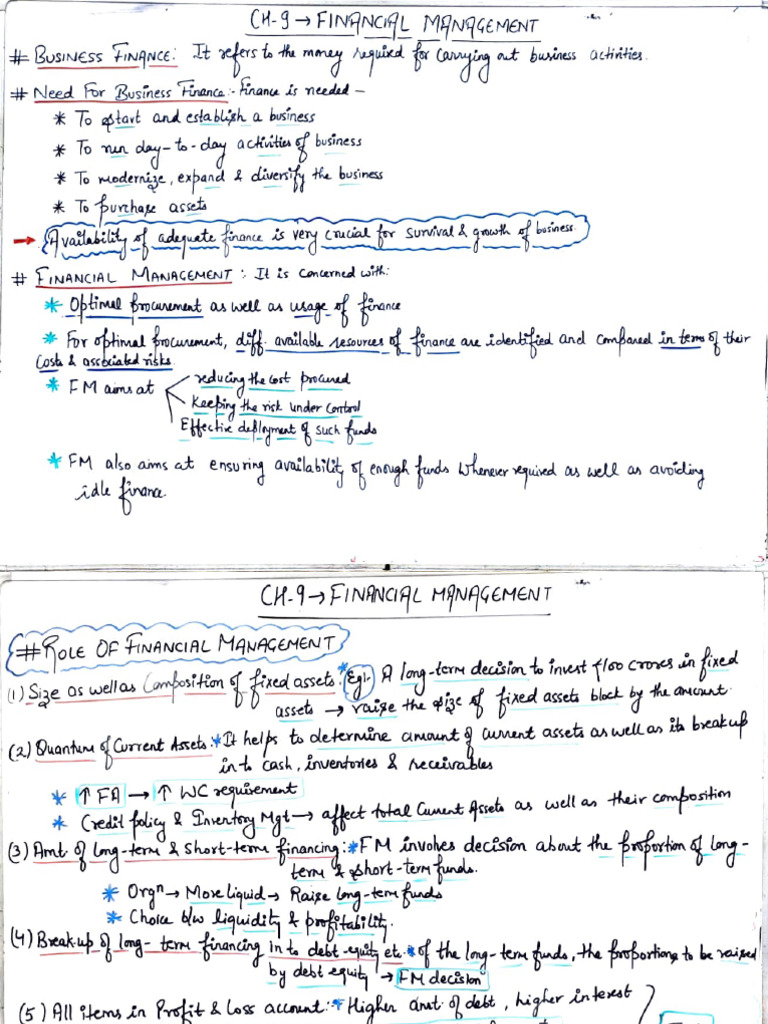 CH-9 → FINANCIAL MANAGEMENT
# BUSINESS FINANCE: It refers to the money required for carrying out business activities.
# NEED FOR BUSINESS FINANCE:- Finance is needed -
* To start and establish a business
* To run day-to-day activities of business
* To modernize, expand & diversify the business
* To purchase assets
→ Availability of adequate finance is very crucial for survival & growth of business.
# FINANCIAL MANAGEMENT: It is concerned with:
* Optimal procurement as well as usage of finance
* For optimal procurement, diff. available resources of finance are identified and compared in term of their
costs & associated risks.
* FM aims at reducing the cost procured
Keeping the risk under control
Effective deployment of such funds
* FM also aims at ensuring availability of enough funds whenever required as well as avoiding
idle finance.
CH-9 → FINANCIAL MANAGEMENT
# ROLE OF FINANCIAL MANAGEMENT
(1) Size as well as Composition of fixed assets: * Eg:- A long-term decision to invest ₹100 crores in fixed
assets → raise the size of fixed assets block by the amount.
(2) Quantum of Current Assets: * It helps to determine amount of current assets as well as its breakup
into cash, inventories & receivables
* ↑ FA → ↑ WC requirement
* Credit policy & Inventory Mgt → affect total Current Assets as well as their composition
(3) Amt. of long-term & Short-term financing: * FM invokes decision about the proportion of long-
term & short-term funds.
* Orgn → More liquid → Raise long-term funds
* Choice b/w liquidity & profitability.
(4) Break-up of long-term financing in to debt equity etc. * of the long-term funds, the proportions to be raised
by debt equity → FM decision
(5) All items in Profit & Loss account: * Higher amt. of debt, higher interest